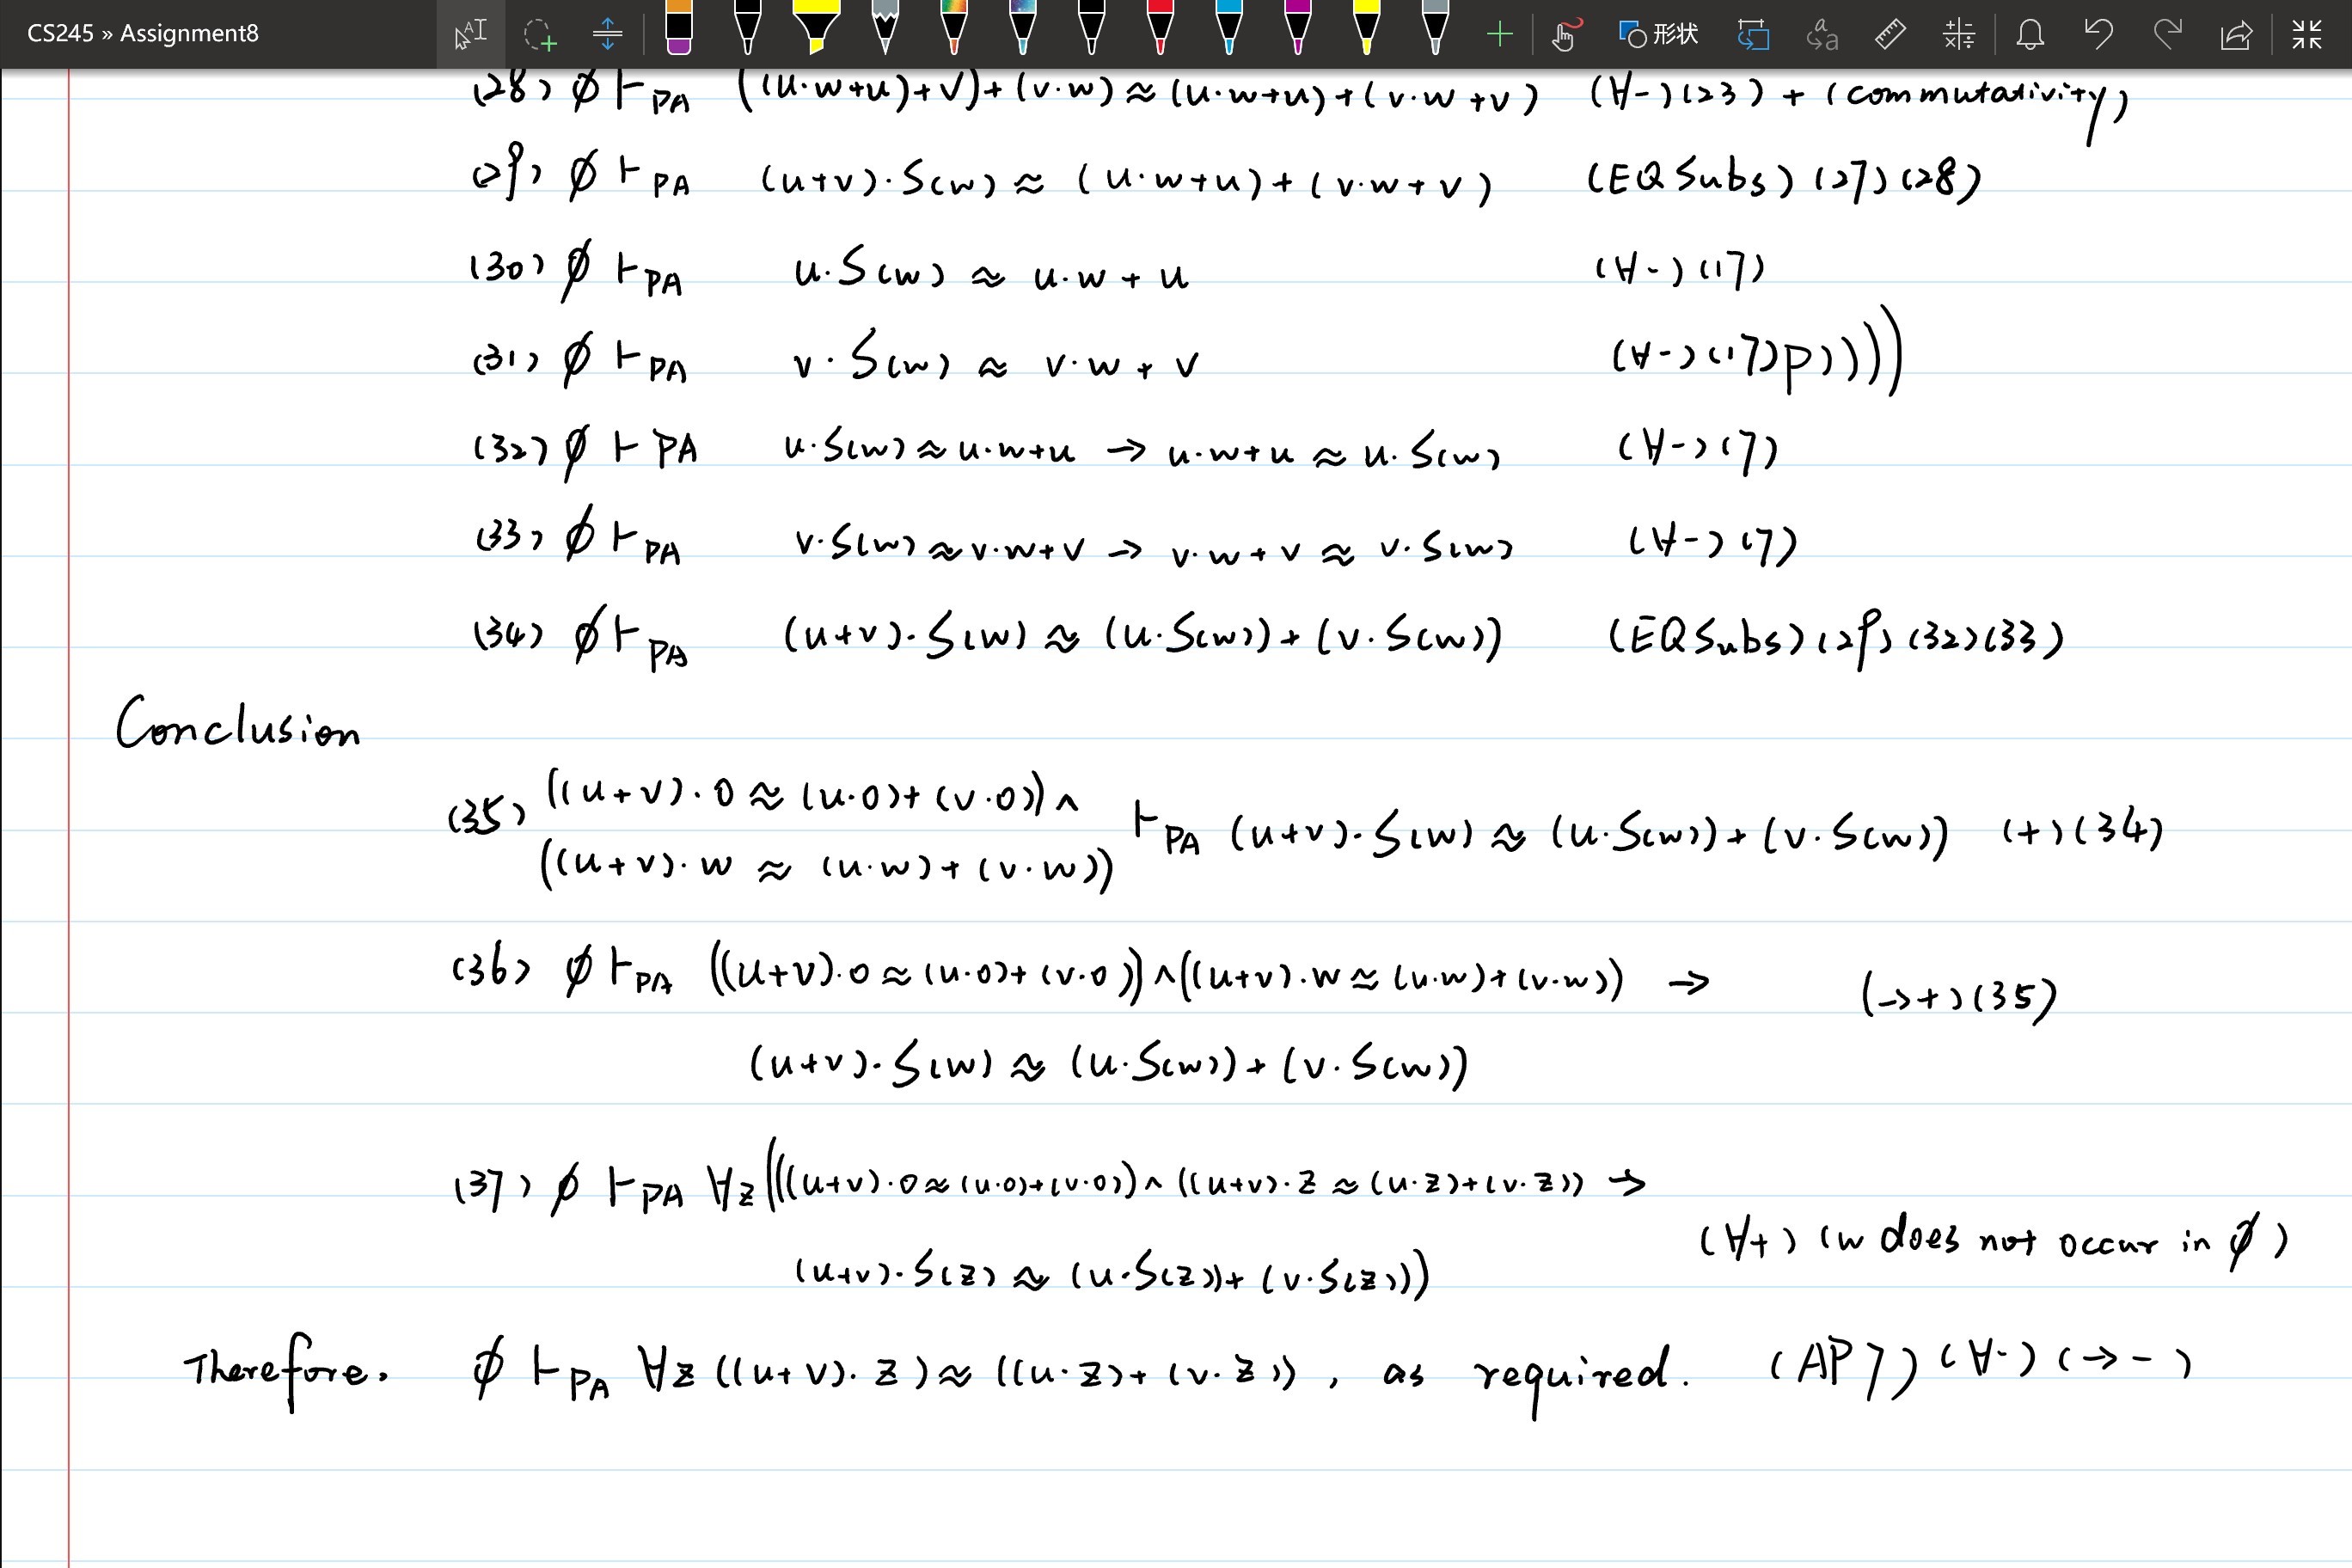 CS245 » Assignment8
形状
(28) ∅ ⊢PA ((u·w+u)+v)+(v·w) ≈ (u·w+u)+(v·w+v) (∀-)(23) + (commutativity)
(29) ∅ ⊢PA (u+v)·S(w) ≈ (u·w+u)+(v·w+v) (EQSubs)(27)(28)
(30) ∅ ⊢PA u·S(w) ≈ u·w+u (∀-)(17)
(31) ∅ ⊢PA v·S(w) ≈ v·w+v (∀-)(17)p))))
(32) ∅ ⊢PA u·S(w) ≈ u·w+u → u·w+u ≈ u·S(w) (∀-)(7)
(33) ∅ ⊢PA v·S(w) ≈ v·w+v → v·w+v ≈ v·S(w) (∀-)(7)
(34) ∅ ⊢PA (u+v)·S(w) ≈ (u·S(w))+(v·S(w)) (EQSubs)(29)(32)(33)
Conclusion
(35) ((u+v)·0 ≈ (u·0)+(v·0)) ∧
((u+v)·w ≈ (u·w)+(v·w)) ⊢PA (u+v)·S(w) ≈ (u·S(w))+(v·S(w)) (+)(34)
(36) ∅ ⊢PA ((u+v)·0 ≈ (u·0)+(v·0)) ∧ ((u+v)·w ≈ (u·w)+(v·w)) → (→+)(35)
(u+v)·S(w) ≈ (u·S(w))+(v·S(w))
(37) ∅ ⊢PA ∀z(((u+v)·0 ≈ (u·0)+(v·0)) ∧ ((u+v)·z ≈ (u·z)+(v·z)) →
(∀+) (w does not occur in ∅)
(u+v)·S(z) ≈ (u·S(z))+(v·S(z)))
Therefore. ∅ ⊢PA ∀z ((u+v)·z) ≈ ((u·z)+(v·z)), as required. (AP7)(∀-)(→-)